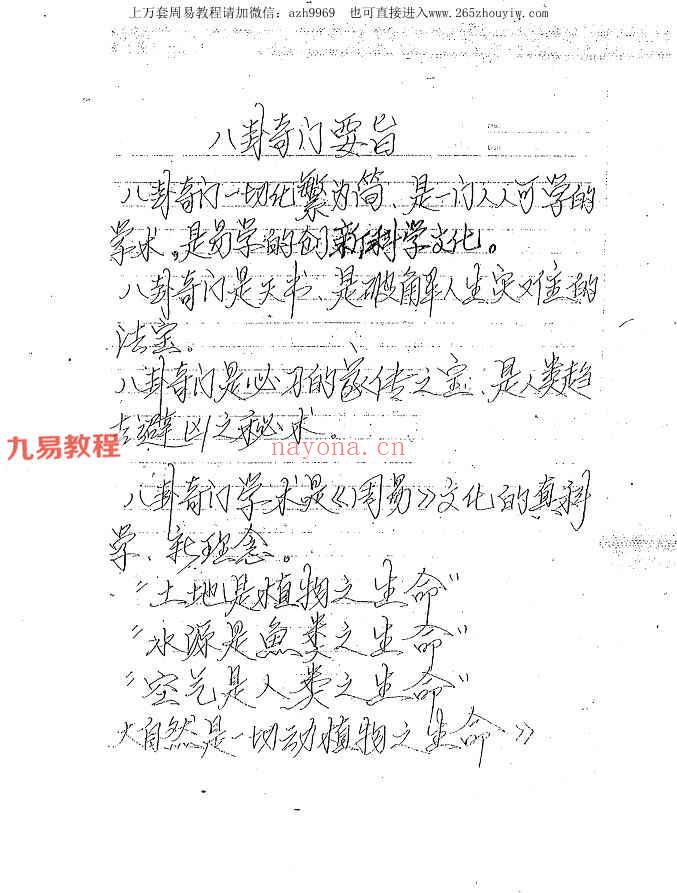 上万套周易教程请加微信：azh9969 也可直接进入www.265zhouyiw.com
八卦奇门要旨
八卦奇门一切化繁为简、是一门人人可学的
学术。是易学的创新科学文化。
八卦奇门是天书、是破解人生灾难的
法宝。
八卦奇门是必习的家传之宝、是人类趋
吉避凶之秘术。
九易教程
nayona.cn
八卦奇门学术是《周易》文化的真科
学、新理念。
"土地是植物之生命"
"水源是魚类之生命"
"空气是人类之生命"
大自然是一切动植物之生命》